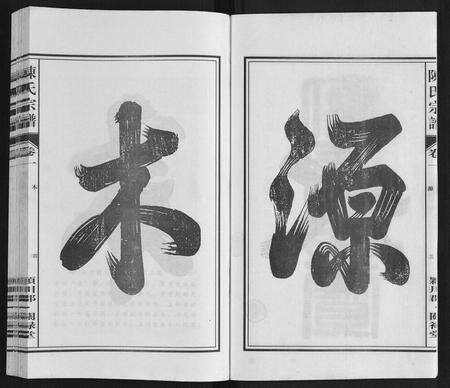 源
木
陳氏宗譜
卷
源
陳氏宗譜
卷一
木